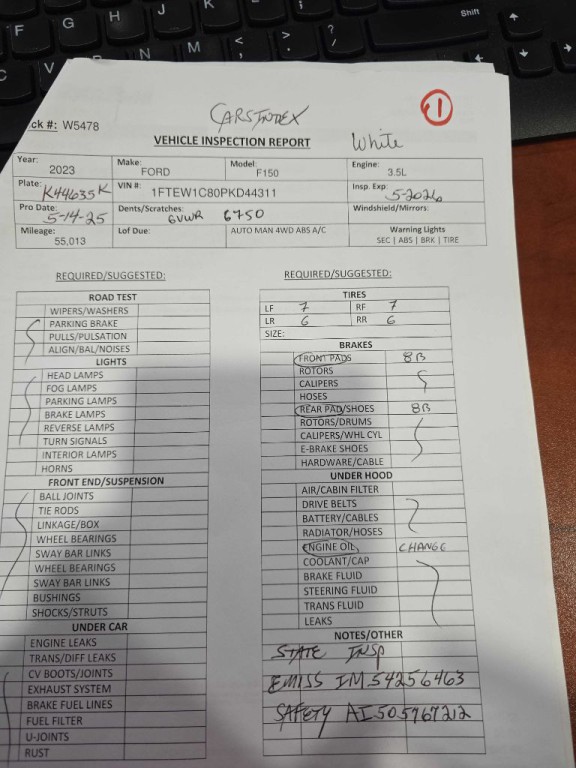 CARSINDEX
1
ck #: W5478
VEHICLE INSPECTION REPORT
White
Year: 2023 Make: FORD Model: F150 Engine: 3.5L
Plate: K44635K VIN #: 1FTEW1C80PKD44311 Insp. Exp: 5-2026
Pro Date: 5-14-25 Dents/Scratches: GVWR 6750 Windshield/Mirrors:
Mileage: 55,013 Lof Due: AUTO MAN 4WD ABS A/C Warning Lights
SEC | ABS | BRK | TIRE
REQUIRED/SUGGESTED:
ROAD TEST
WIPERS/WASHERS
PARKING BRAKE
PULLS/PULSATION
ALIGN/BAL/NOISES
LIGHTS
HEAD LAMPS
FOG LAMPS
PARKING LAMPS
BRAKE LAMPS
REVERSE LAMPS
TURN SIGNALS
INTERIOR LAMPS
HORNS
FRONT END/SUSPENSION
BALL JOINTS
TIE RODS
LINKAGE/BOX
WHEEL BEARINGS
SWAY BAR LINKS
WHEEL BEARINGS
SWAY BAR LINKS
BUSHINGS
SHOCKS/STRUTS
UNDER CAR
ENGINE LEAKS
TRANS/DIFF LEAKS
CV BOOTS/JOINTS
EXHAUST SYSTEM
BRAKE FUEL LINES
FUEL FILTER
U-JOINTS
RUST
REQUIRED/SUGGESTED:
TIRES
LF 7 RF 7
LR 6 RR 6
SIZE:
BRAKES
FRONT PADS 8B
ROTORS
CALIPERS
HOSES
REAR PAD/SHOES 8B
ROTORS/DRUMS
CALIPERS/WHL CYL
E-BRAKE SHOES
HARDWARE/CABLE
UNDER HOOD
AIR/CABIN FILTER
DRIVE BELTS
BATTERY/CABLES
RADIATOR/HOSES
ENGINE OIL CHANGE
COOLANT/CAP
BRAKE FLUID
STEERING FLUID
TRANS FLUID
LEAKS
NOTES/OTHER
STATE INSP
EMISS IM54256463
SAFETY AI505767212
F
G
H
J
K
L
C
V
B
N
M
<
,
>
.
?
/
Shift